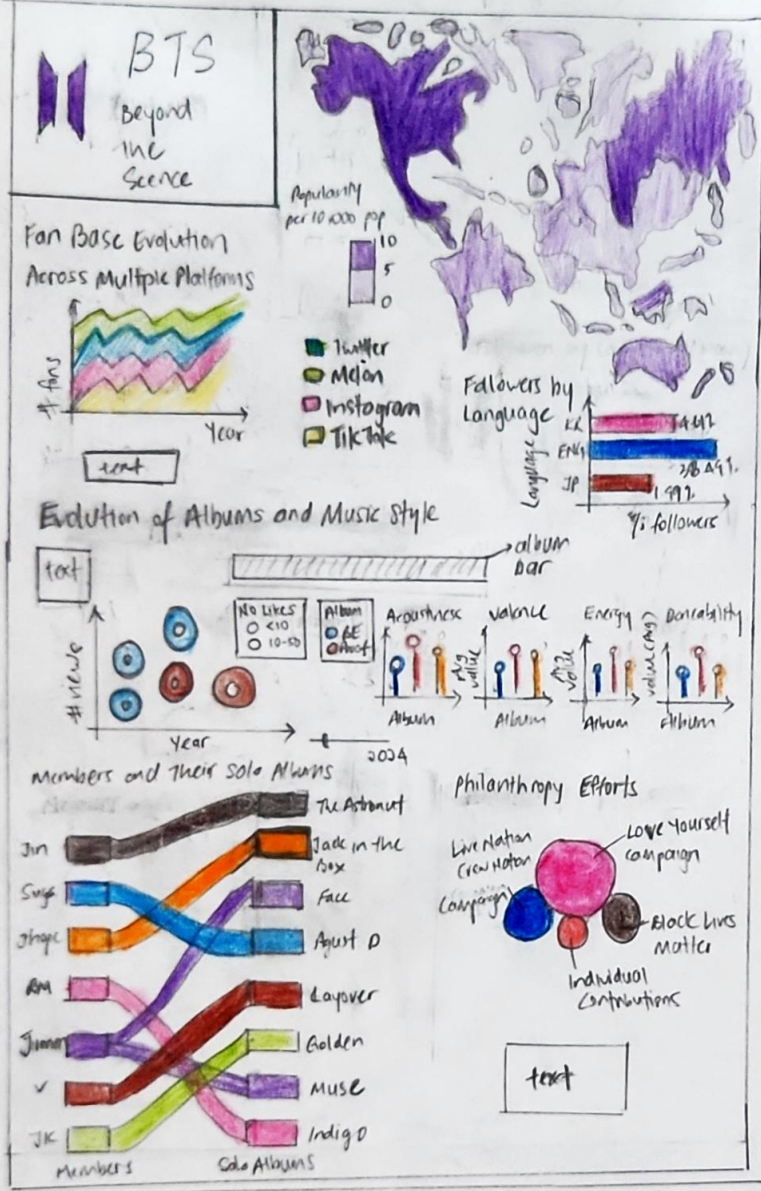 BTS
Beyond
The
Scence
Popularity
per 10 000 pop
10
5
0
Fan Base Evolution
Across Multiple Platforms
# fans
Year
text
Twitter
Melon
Instagram
TikTok
Followers by
Language
Language
KR
ENG
JP
28.49%
1.99%
% followers
Evolution of Albums and Music Style
text
album
bar
# views
Year
No Likes
<10
10-50
Album
BE
Proof
2024
Acoustness
Avg
value
Album
Valence
Avg
value
Album
Energy
value (Avg)
Album
Danceability
Album
Members and Their Solo Albums
Jin
Suga
Jhope
RM
Jimin
V
JK
Members
The Astronaut
Jack in the
Box
Face
Agust D
Layover
Golden
Muse
Indigo
Solo Albums
Philanthropy Efforts
Live Nation
Crew Nation
Campaign
Love Yourself
campaign
Black Lives
Matter
Individual
Contributions
text